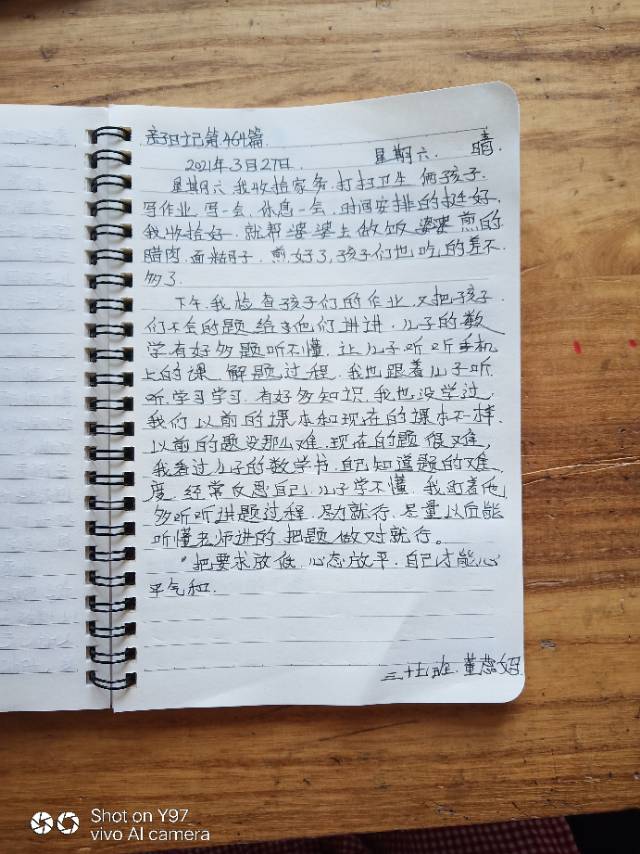 亲子日记第464篇
2021年3月27日 星期六. 晴
星期六我收拾家务.打扫卫生 俩孩子.
写作业 写一会.休息一会.时间安排的挺好.
我收拾好.就帮婆婆去做饭 婆婆煎的
腊肉.面 子.煎好了,孩子们也吃的差不
多了.
下午.我检查孩子们的作业.又把孩子
们不会的题给他们讲讲.儿子的数
学有好多题听不懂.让儿子听听手机
上的课.解题过程.我也跟着儿子听
听.学习学习.有好多知识.我也没学过.
我们以前的课本和现在的课本不一样.
以前的题没那么难.现在的题很难,
我看过儿子的数学书.自己知道题的难
度.经常反思自己.儿子学不懂.我盯着他
多听听讲题过程.尽力就行.尽量以后能
听懂老师讲的.把题做对就行。
把要求放低.心态放平.自己才能心
平气和.
三 班.董 妈
Shot on Y97
vivo AI camera